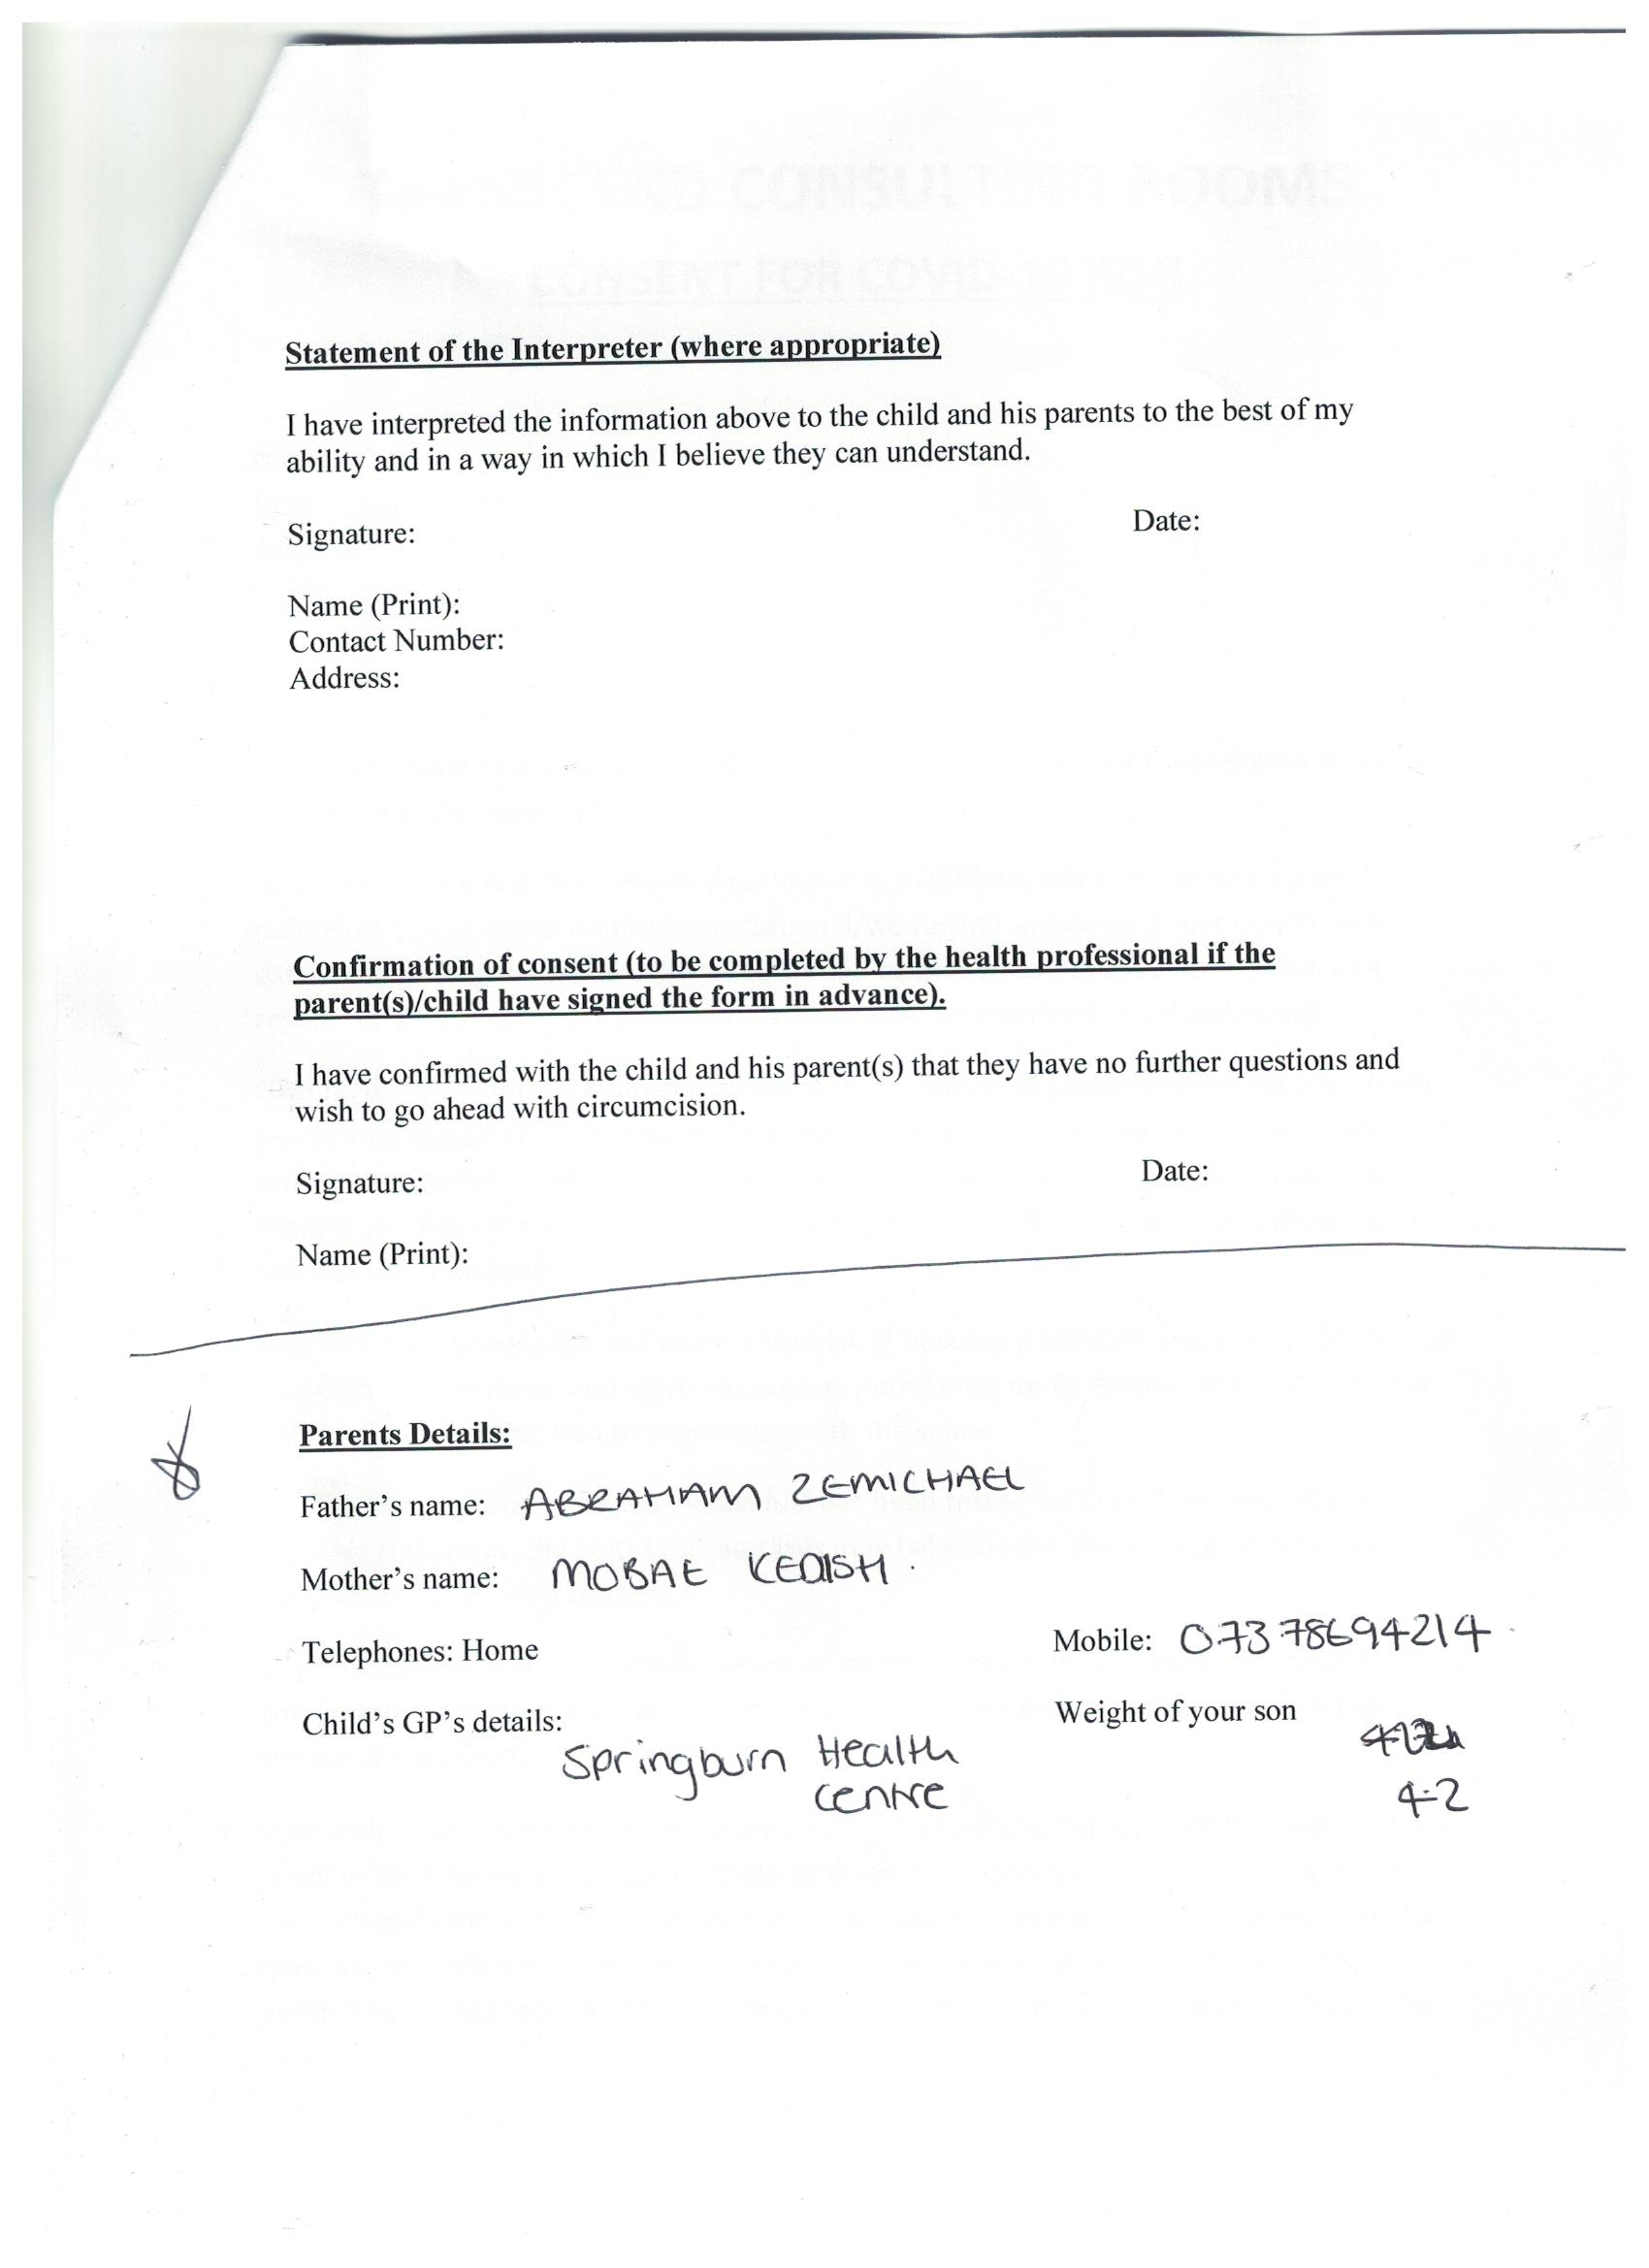 CONSULTING ROOMS
CONSENT FOR COVID
Statement of the Interpreter (where appropriate)
I have interpreted the information above to the child and his parents to the best of my
ability and in a way in which I believe they can understand.
Signature: Date:
Name (Print):
Contact Number:
Address:
Confirmation of consent (to be completed by the health professional if the
parent(s)/child have signed the form in advance).
I have confirmed with the child and his parent(s) that they have no further questions and
wish to go ahead with circumcision.
Signature: Date:
Name (Print):
Parents Details:
Father's name: ABRAHAM ZEMICHAEL
Mother's name: MOBAE KEDISH.
Telephones: Home Mobile: 07378694214
Child's GP's details: Weight of your son
Springburn Health
Centre
4-2